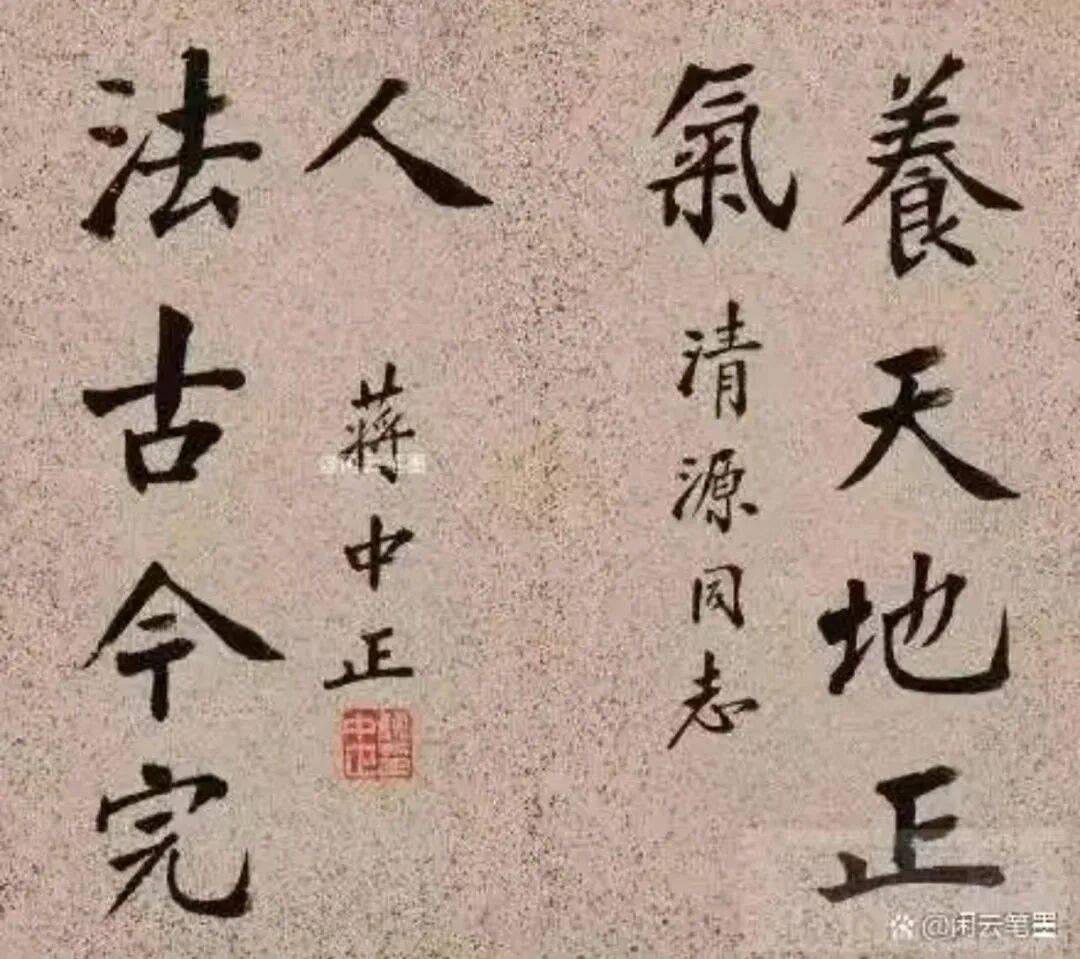 養天地正
氣
清源同志
法古今完
人
蔣中正
@闲云笔墨